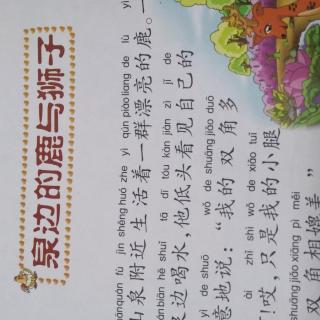 泉边的鹿与狮子
ānquán fù jìn shēng huó zhe yì qún piào liang de lù yì
山泉附近生活着一群漂亮的鹿。一
ánbiān hē shuǐ tā dī tóu kàn jiàn zì jǐ de
泉边喝水,他低头看见自己的
yì de shuō wǒ de shuāng jiǎo duō
意地说:“我的双角多
āi zhǐ shì wǒ de xiǎo tuǐ
!哎,只是我的小腿
shuāng jiǎo xiāng pì měi
双角相媲美”